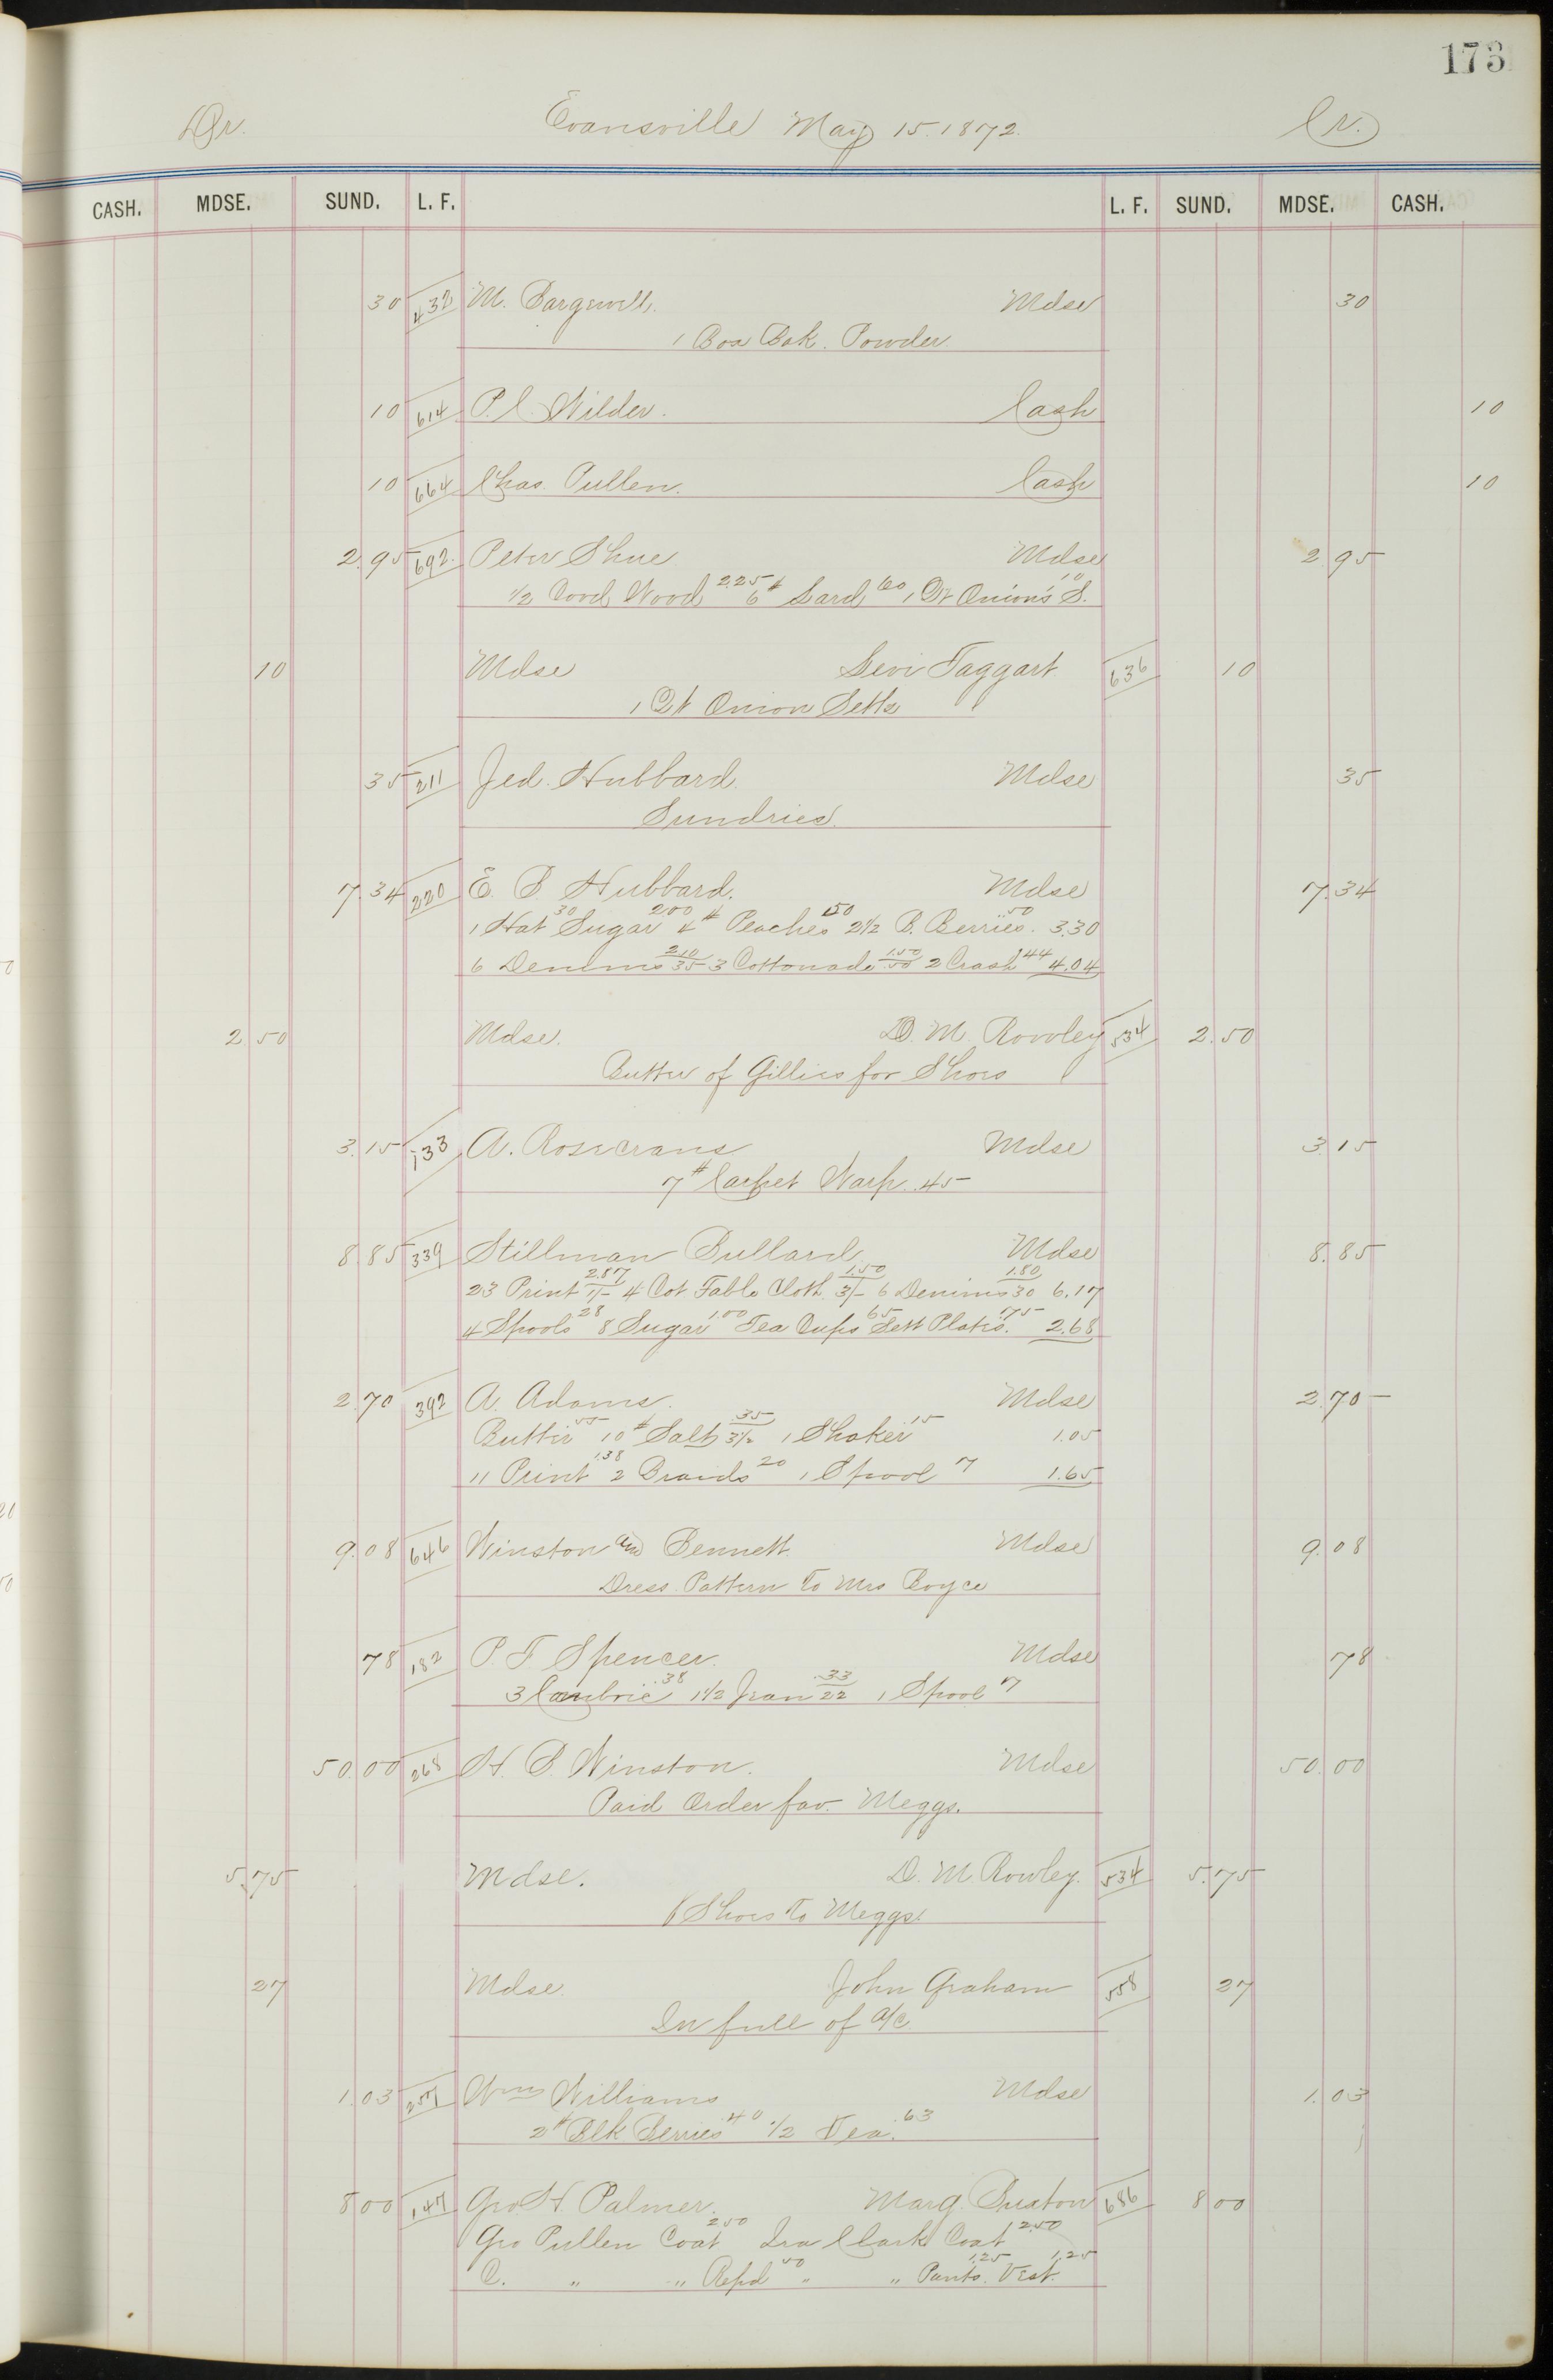 173
Dr. Evansville May 15. 1872. Cr.
CASH. MDSE. SUND. L. F. L. F. SUND. MDSE. CASH.
30 432 M. Mdse 30
1 Box Bak. Powder
10 614 P. C. Wilder. Cash 10
10 664 Chas. Pullen. Cash 10
2.95 692 Peter Shue Mdse 2.95
1/2 Cord Wood 2.25 6# Lard 60 1 Qt Onions S. 10
10 Mdse Levi Taggart 636 10
1 Qt Onion Setts
35 211 Jed. Hubbard. Mdse 35
Sundries.
7.34 220 E. B. Hubbard. Mdse 7.34
1 Hat 30 Sugar 200 4# Peaches 50 2 1/2 B. Berries. 50 3.30
6 Denims 2.10/35 3 Cottonade 1.50/.50 2 Crash 44 4.04
2 50 Mdse. D. M. Rowley 534 2.50
Butter of Gillies for Shoes
3.15 133 A. Rosecrans Mdse 3 15
7# Carpet Warp. .45
8.85 339 Stillman Bullard Mdse 8.85
23 Print 2.87/1/- 4 Cot Table Cloth 1.50/3/- 6 Denims 1.80/30 6.17
4 Spools 28 8 Sugar 1.00 Tea Cups 65 Sett Plates. .75 2.68
2 70 392 A. Adams. Mdse 2.70
Butter 55 10# Salt .35/3 1/2 1 Shaker 15 1.05
11 Print 1.38 2 Braids 20 1 Spool 7 1.65
9.08 646 Winston and Bennett Mdse 9.08
Dress Pattern to Mrs Boyce
78 182 P. F Spencer. Mdse 78
3 Cambric .38 1 1/2 Jean .33/22 1 Spool 7
50.00 268 H. B. Winston. Mdse 50.00
Paid Order fav. Meggs.
5.75 Mdse. D. M Rowley. 534 5.75
Shoes to Meggs
27 Mdse. John Graham 558 27
In full of a/c
1.03 257 Wm Williams Mdse 1.03
2# Blk Berries 40 1/2 Tea. 63
8 00 147 Geo H Palmer. Marg. Buxton 686 8 00
Geo Pullen Coat 2 50 Ira Clark Coat 2.50
C. " " Repd 50 " " Pants. 1.25 Vest. 1.25